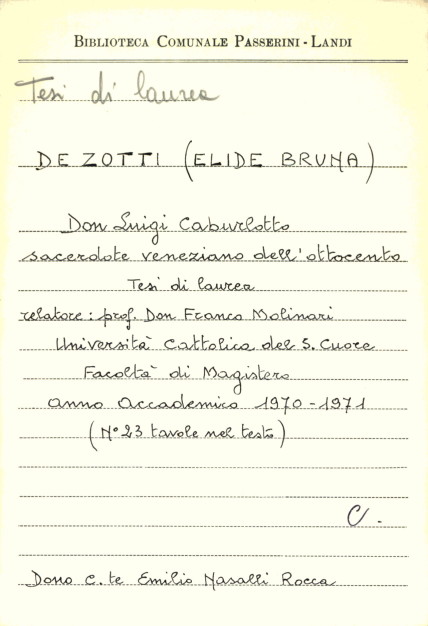 BIBLIOTECA COMUNALE PASSERINI - LANDI
Tesi di laurea
DE ZOTTI (ELIDE BRUNA)
Don Luigi Caburlotto
sacerdote veneziano dell'ottocento
Tesi di laurea
relatore: prof. Don Franco Molinari
Università Cattolica del S. Cuore
Facoltà di Magistero
Anno Accademico 1970-1971
(N° 23 tavole nel testo)
C.
Dono C.te Emilio Nasalli Rocca